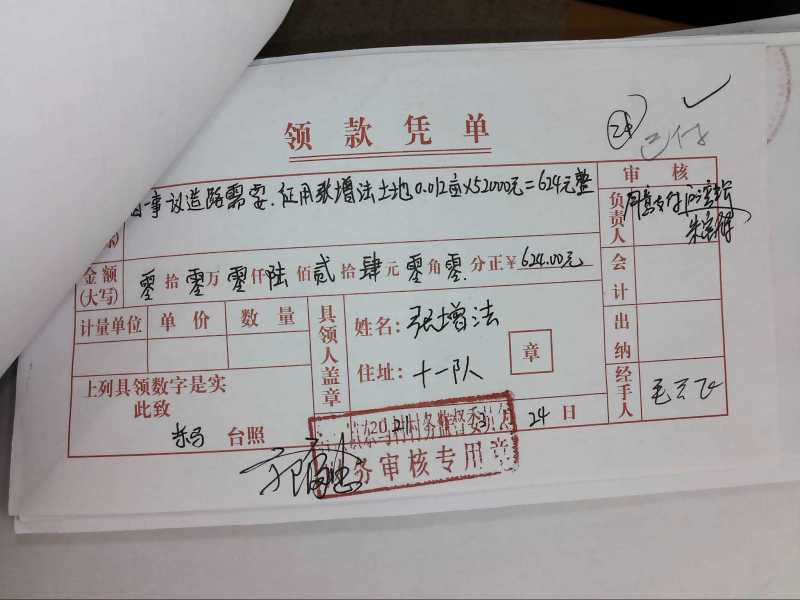 24
已付
领款凭单
因一事议道路需要.征用张增法土地0.012亩×52000元=624元整
审核
负责人
同意支付
金额(大写) 零拾零万零仟陆佰贰拾肆元零角零分正¥624.00元
会计
计量单位 单价 数量
具领人盖章
姓名:张增法
章
出纳
住址:十一队
上列具领数字是实
此致
经手人
台照
24日
务审核专用章